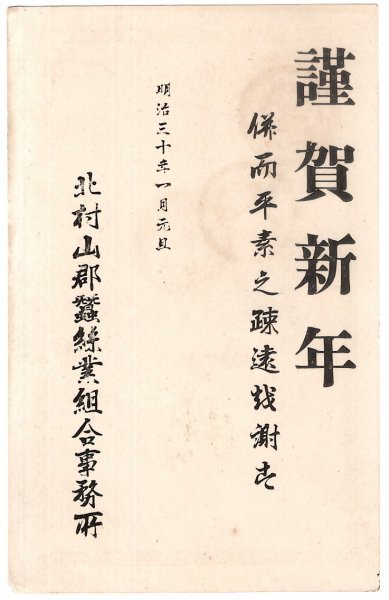 謹賀新年
併而平素之疎遠越謝す
明治三十年一月元旦
北村山郡蠶絲業組合事務所